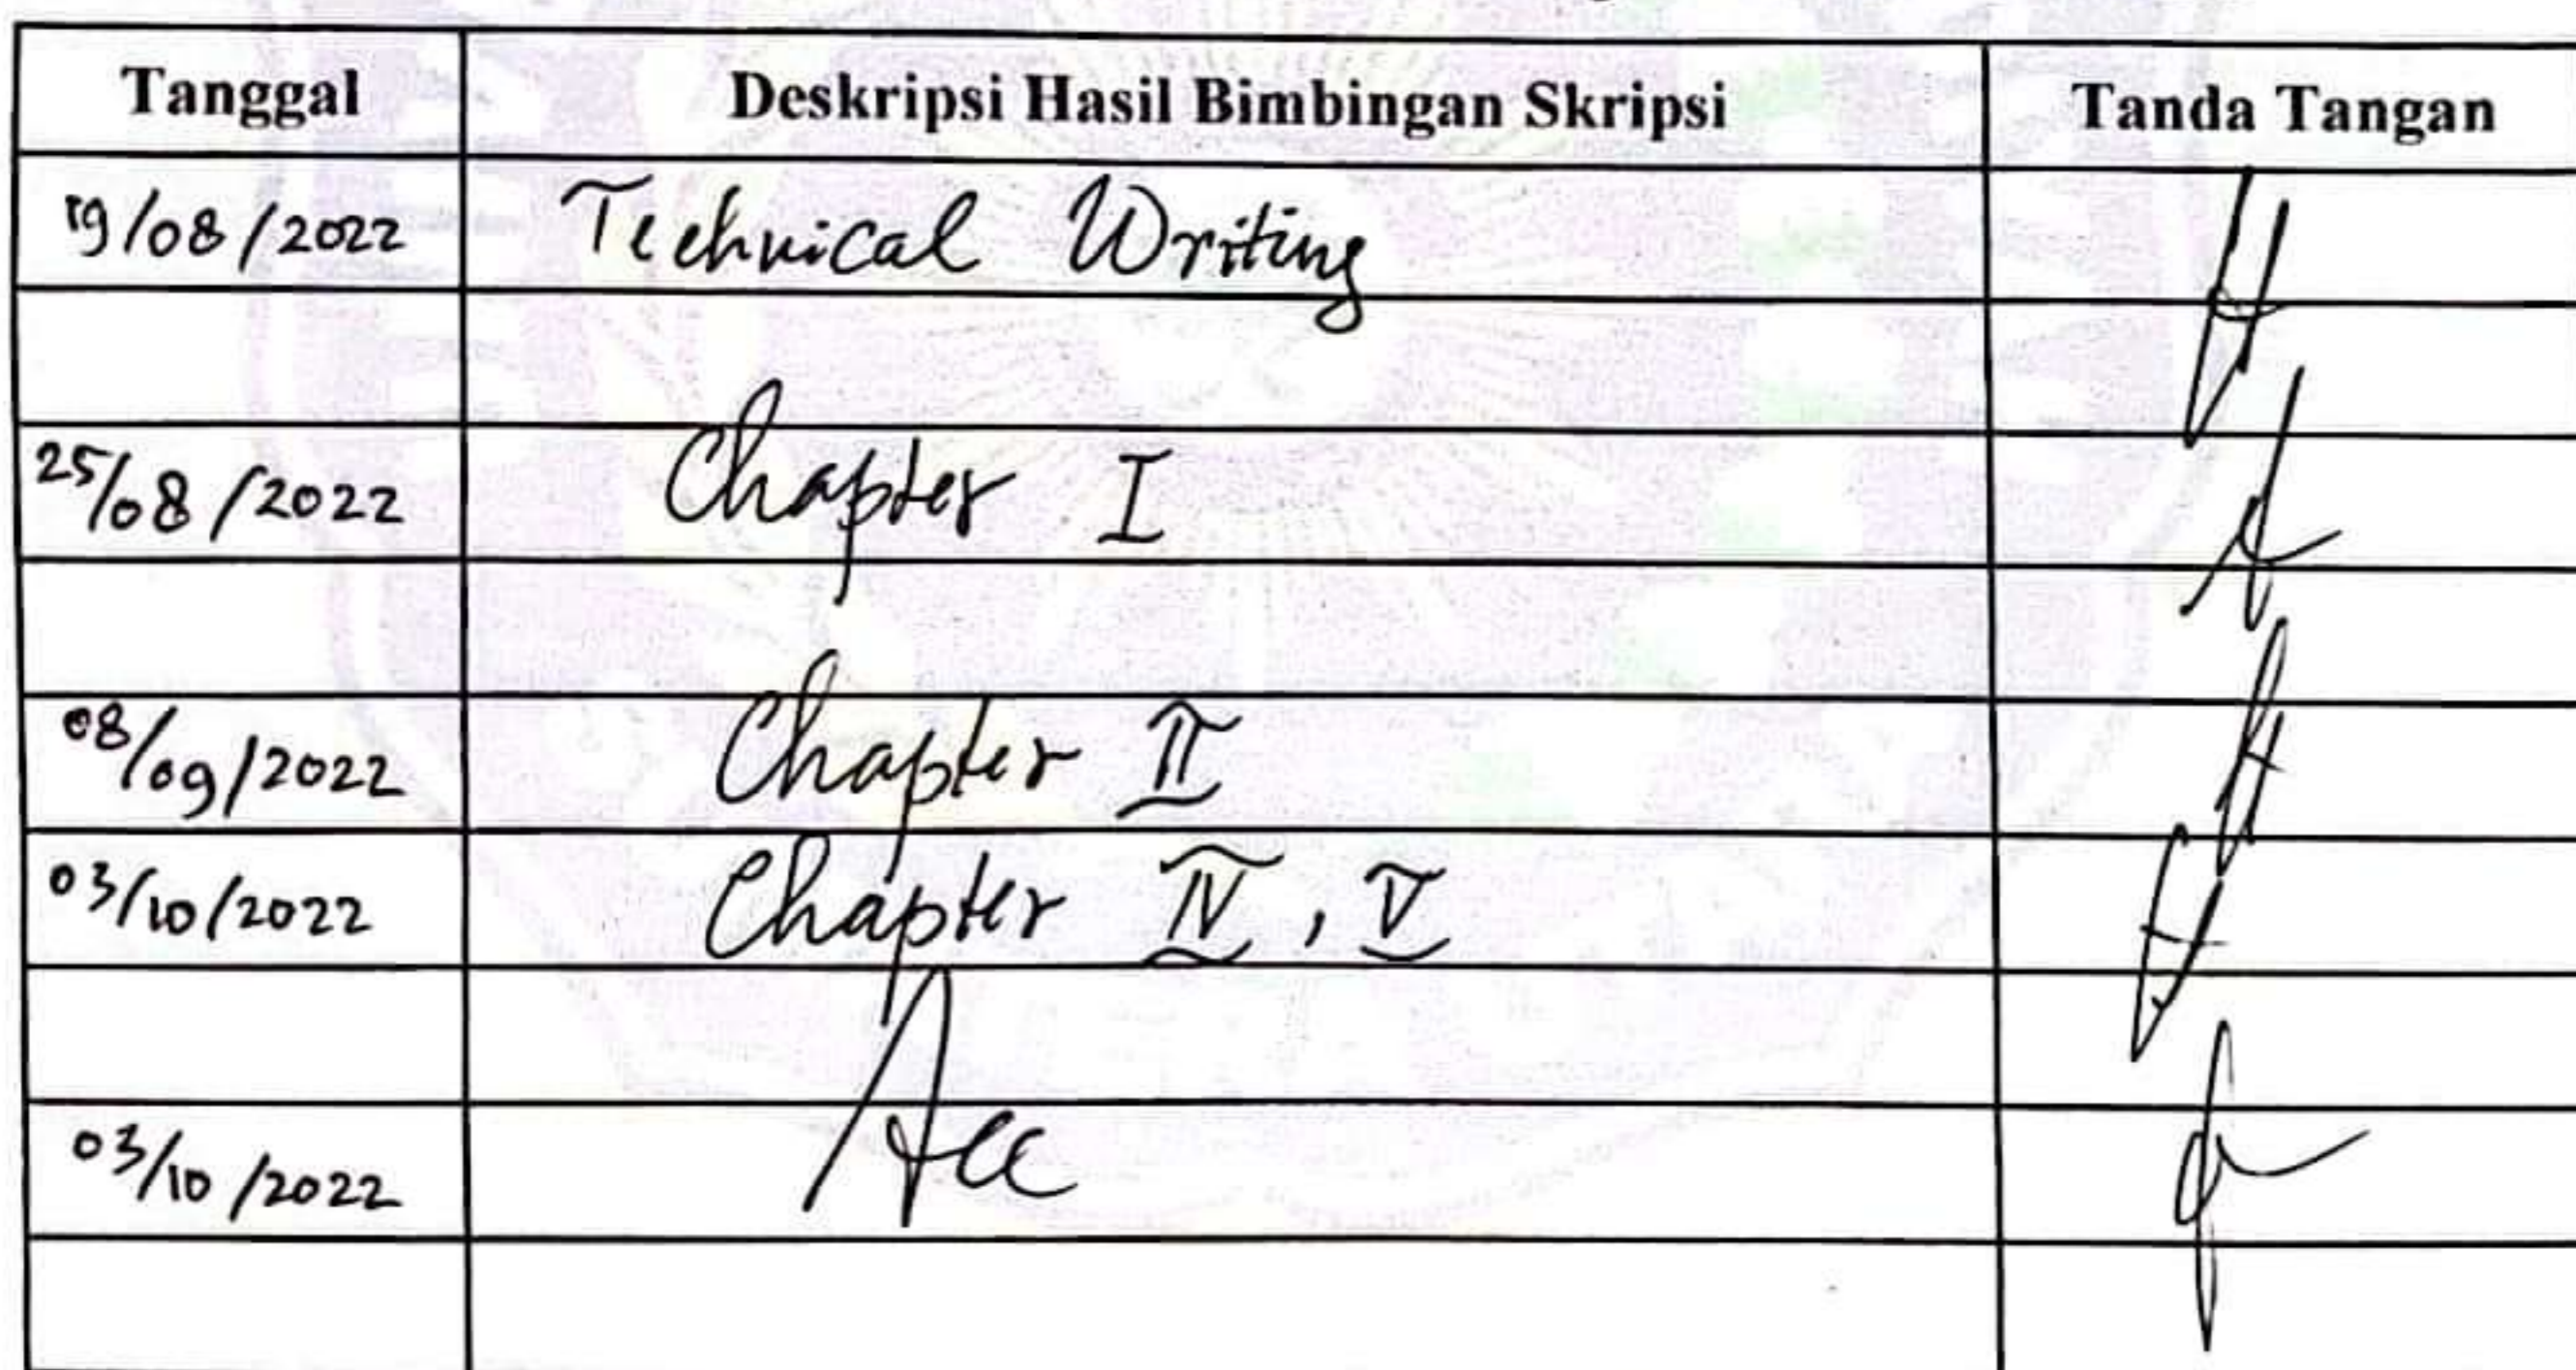 Tanggal Deskripsi Hasil Bimbingan Skripsi Tanda Tangan
19/08/2022 Technical Writing
25/08/2022 Chapter I
08/09/2022 Chapter II
03/10/2022 Chapter IV, V
03/10/2022 Acc